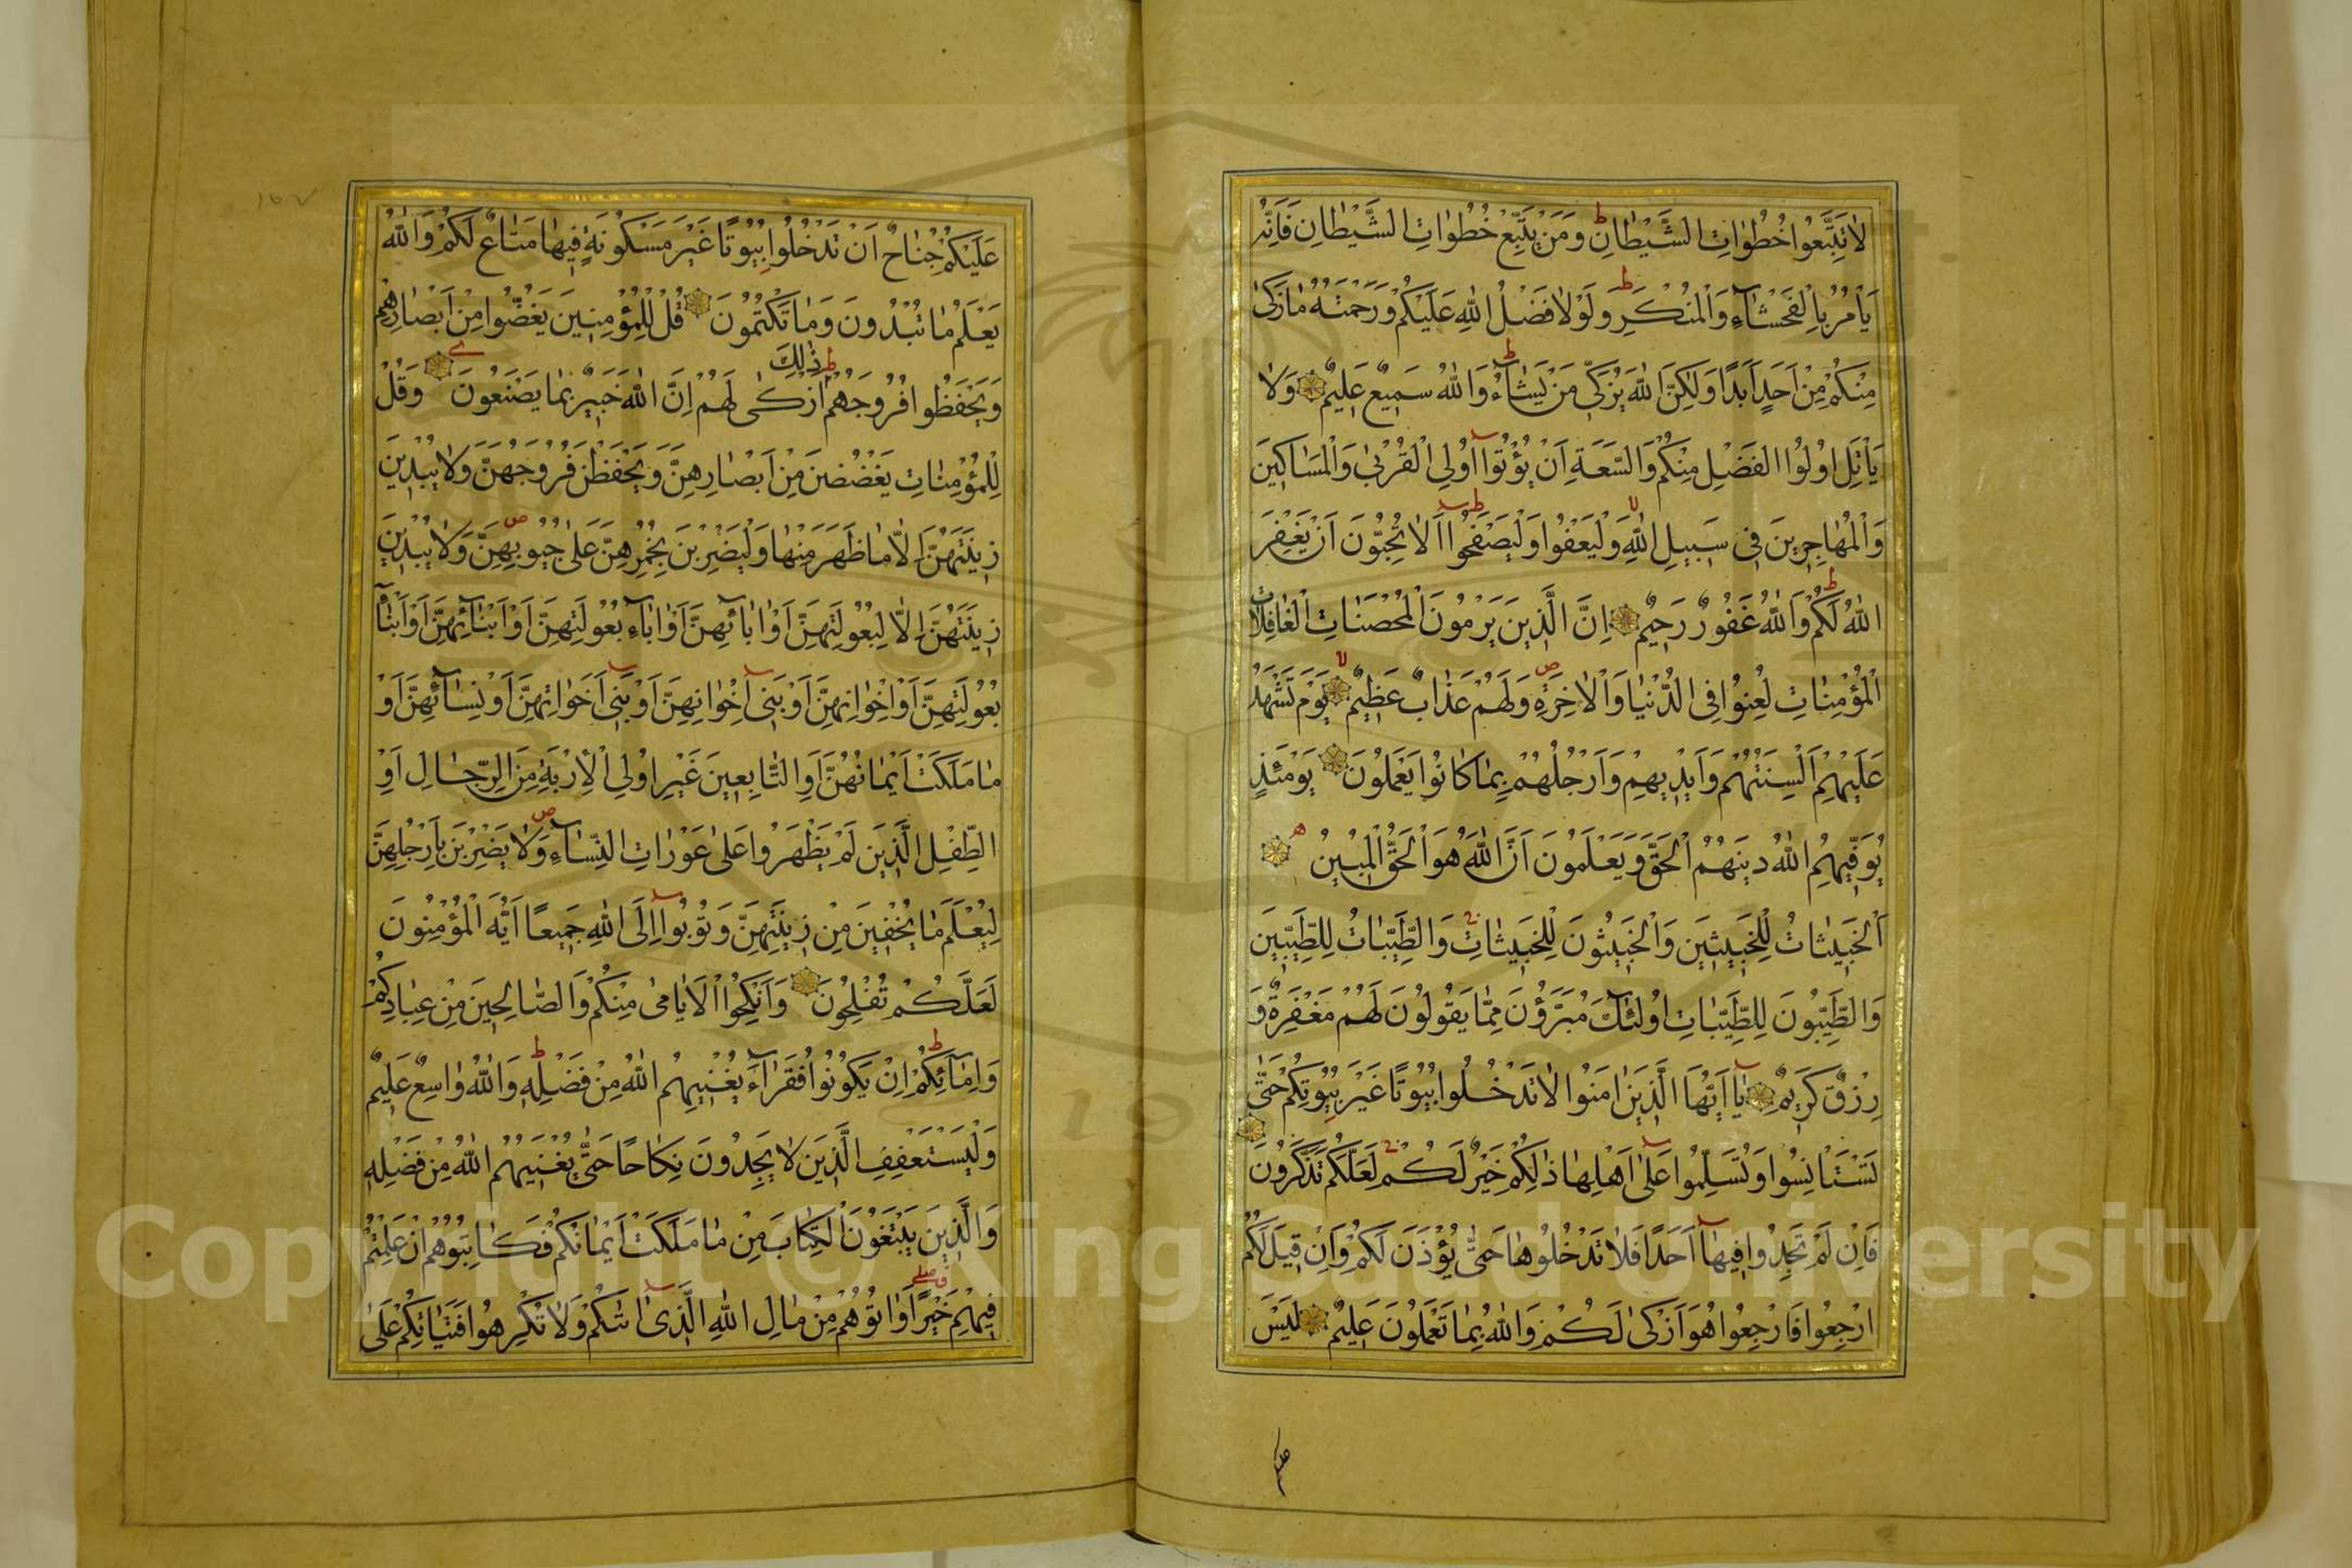 لَا تَتَّبِعُوا خُطُوَاتِ الشَّيْطَانِ وَمَنْ يَتَّبِعْ خُطُوَاتِ الشَّيْطَانِ فَاِنَّهُ
يَأْمُرُ بِالْفَحْشَآءِ وَالْمُنْكَرِ وَلَوْلَا فَضْلُ اللّٰهِ عَلَيْكُمْ وَرَحْمَتُهُ مَا زَكٰى
مِنْكُمْ مِنْ اَحَدٍ اَبَدًا وَلٰكِنَّ اللّٰهَ يُزَكِّي مَنْ يَشَآءُ وَاللّٰهُ سَمِيعٌ عَلِيمٌ وَلَا
يَأْتَلِ اُولُوا الْفَضْلِ مِنْكُمْ وَالسَّعَةِ اَنْ يُؤْتُوآ اُولِي الْقُرْبٰى وَالْمَسَاكِينَ
وَالْمُهَاجِرِينَ فِي سَبِيلِ اللّٰهِ وَلْيَعْفُوا وَلْيَصْفَحُوا اَلَا تُحِبُّونَ اَنْ يَغْفِرَ
اللّٰهُ لَكُمْ وَاللّٰهُ غَفُورٌ رَحِيمٌ اِنَّ الَّذِينَ يَرْمُونَ الْمُحْصَنَاتِ الْغَافِلَاتِ
الْمُؤْمِنَاتِ لُعِنُوا فِي الدُّنْيَا وَالْاٰخِرَةِ وَلَهُمْ عَذَابٌ عَظِيمٌ يَوْمَ تَشْهَدُ
عَلَيْهِمْ اَلْسِنَتُهُمْ وَاَيْدِيهِمْ وَاَرْجُلُهُمْ بِمَا كَانُوا يَعْمَلُونَ يَوْمَئِذٍ
يُوَفِّيهِمُ اللّٰهُ دِينَهُمُ الْحَقَّ وَيَعْلَمُونَ اَنَّ اللّٰهَ هُوَ الْحَقُّ الْمُبِينُ
اَلْخَبِيثَاتُ لِلْخَبِيثِينَ وَالْخَبِيثُونَ لِلْخَبِيثَاتِ وَالطَّيِّبَاتُ لِلطَّيِّبِينَ
وَالطَّيِّبُونَ لِلطَّيِّبَاتِ اُولٰٓئِكَ مُبَرَّؤُنَ مِمَّا يَقُولُونَ لَهُمْ مَغْفِرَةٌ وَ
رِزْقٌ كَرِيمٌ يَآ اَيُّهَا الَّذِينَ اٰمَنُوا لَا تَدْخُلُوا بُيُوتًا غَيْرَ بُيُوتِكُمْ حَتّٰى
تَسْتَأْنِسُوا وَتُسَلِّمُوا عَلٰى اَهْلِهَا ذٰلِكُمْ خَيْرٌ لَكُمْ لَعَلَّكُمْ تَذَكَّرُونَ
فَاِنْ لَمْ تَجِدُوا فِيهَآ اَحَدًا فَلَا تَدْخُلُوهَا حَتّٰى يُؤْذَنَ لَكُمْ وَاِنْ قِيلَ لَكُمُ
ارْجِعُوا فَارْجِعُوا هُوَ اَزْكٰى لَكُمْ وَاللّٰهُ بِمَا تَعْمَلُونَ عَلِيمٌ لَيْسَ
عَلَيْكُمْ جُنَاحٌ اَنْ تَدْخُلُوا بُيُوتًا غَيْرَ مَسْكُونَةٍ فِيهَا مَتَاعٌ لَكُمْ وَاللّٰهُ
يَعْلَمُ مَا تُبْدُونَ وَمَا تَكْتُمُونَ قُلْ لِلْمُؤْمِنِينَ يَغُضُّوا مِنْ اَبْصَارِهِمْ
وَيَحْفَظُوا فُرُوجَهُمْ ذٰلِكَ اَزْكٰى لَهُمْ اِنَّ اللّٰهَ خَبِيرٌ بِمَا يَصْنَعُونَ وَقُلْ
لِلْمُؤْمِنَاتِ يَغْضُضْنَ مِنْ اَبْصَارِهِنَّ وَيَحْفَظْنَ فُرُوجَهُنَّ وَلَا يُبْدِينَ
زِينَتَهُنَّ اِلَّا مَا ظَهَرَ مِنْهَا وَلْيَضْرِبْنَ بِخُمُرِهِنَّ عَلٰى جُيُوبِهِنَّ وَلَا يُبْدِينَ
زِينَتَهُنَّ اِلَّا لِبُعُولَتِهِنَّ اَوْ اٰبَآئِهِنَّ اَوْ اٰبَآءِ بُعُولَتِهِنَّ اَوْ اَبْنَآئِهِنَّ اَوْ اَبْنَآءِ
بُعُولَتِهِنَّ اَوْ اِخْوَانِهِنَّ اَوْ بَنِيٓ اِخْوَانِهِنَّ اَوْ بَنِيٓ اَخَوَاتِهِنَّ اَوْ نِسَآئِهِنَّ اَوْ
مَا مَلَكَتْ اَيْمَانُهُنَّ اَوِ التَّابِعِينَ غَيْرِ اُولِي الْاِرْبَةِ مِنَ الرِّجَالِ اَوِ
الطِّفْلِ الَّذِينَ لَمْ يَظْهَرُوا عَلٰى عَوْرَاتِ النِّسَآءِ وَلَا يَضْرِبْنَ بِاَرْجُلِهِنَّ
لِيُعْلَمَ مَا يُخْفِينَ مِنْ زِينَتِهِنَّ وَتُوبُوآ اِلَى اللّٰهِ جَمِيعًا اَيُّهَ الْمُؤْمِنُونَ
لَعَلَّكُمْ تُفْلِحُونَ وَاَنْكِحُوا الْاَيَامٰى مِنْكُمْ وَالصَّالِحِينَ مِنْ عِبَادِكُمْ
وَاِمَآئِكُمْ اِنْ يَكُونُوا فُقَرَآءَ يُغْنِيهِمُ اللّٰهُ مِنْ فَضْلِهِ وَاللّٰهُ وَاسِعٌ عَلِيمٌ
وَلْيَسْتَعْفِفِ الَّذِينَ لَا يَجِدُونَ نِكَاحًا حَتّٰى يُغْنِيَهُمُ اللّٰهُ مِنْ فَضْلِهِ
وَالَّذِينَ يَبْتَغُونَ الْكِتَابَ مِنْ مَا مَلَكَتْ اَيْمَانُكُمْ فَكَاتِبُوهُمْ اِنْ عَلِمْتُمْ
فِيهِمْ خَيْرًا وَاٰتُوهُمْ مِنْ مَالِ اللّٰهِ الَّذِيٓ اٰتٰىكُمْ وَلَا تُكْرِهُوا فَتَيَاتِكُمْ عَلَى
Copyright © King Saud University